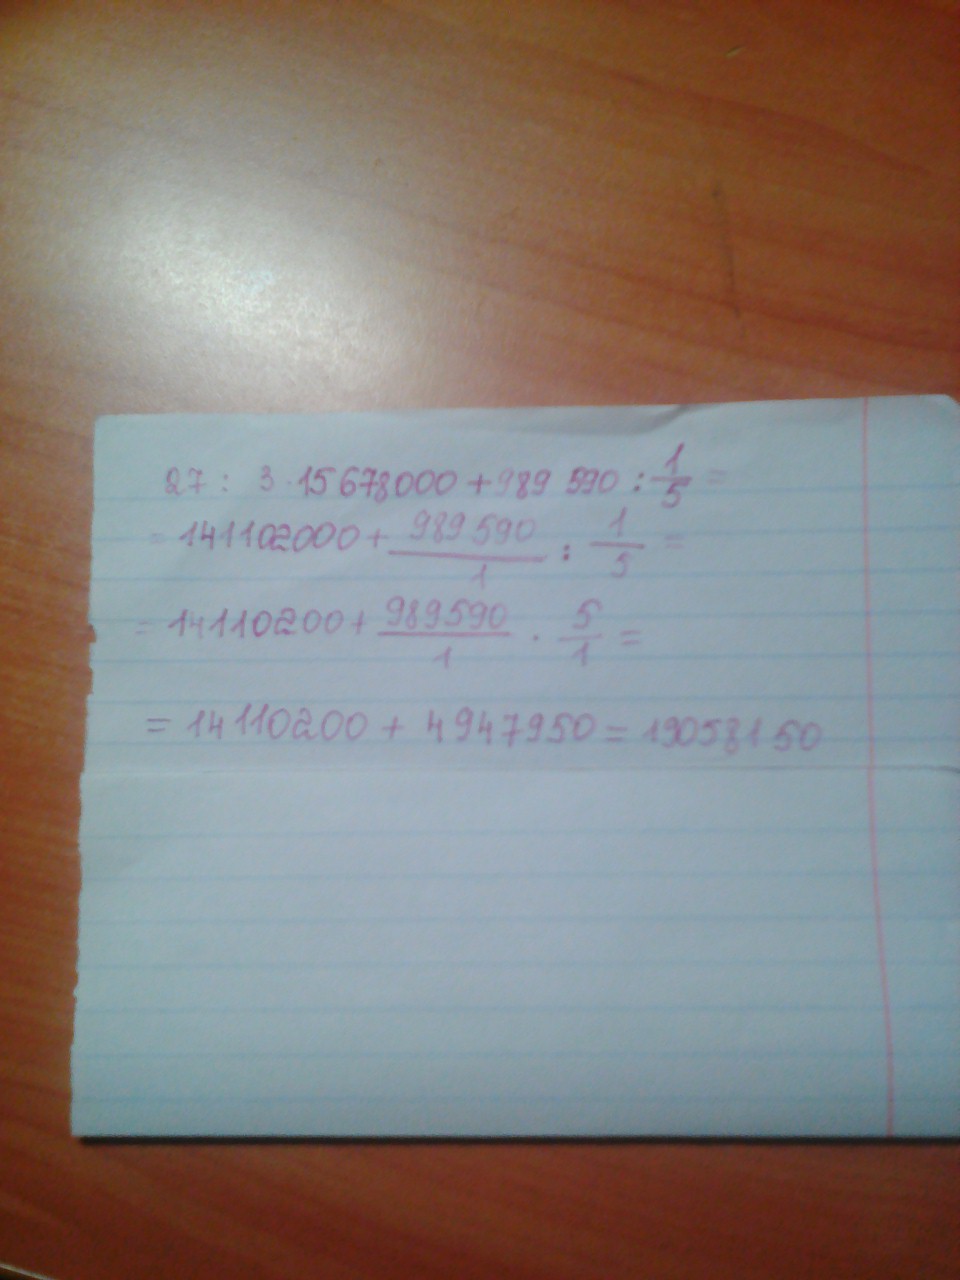 27 : 3 · 15678000 + 989 590 : 1/5 =
= 141102000 + 989 590/1 : 1/5 =
= 14110200 + 989590/1 · 5/1 =
= 14110200 + 4947950 = 19058150